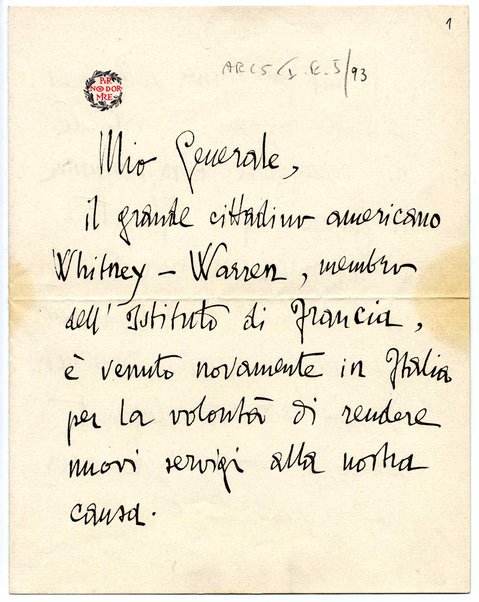 1
PER
NON DOR
MIRE
ARC5/I.R.5/93
Mio Generale,
il grande cittadino americano
Whitney – Warren, membro
dell' Istituto di Francia,
è venuto novamente in Italia
per la volontà di rendere
nuovi servigi alla nostra
causa.